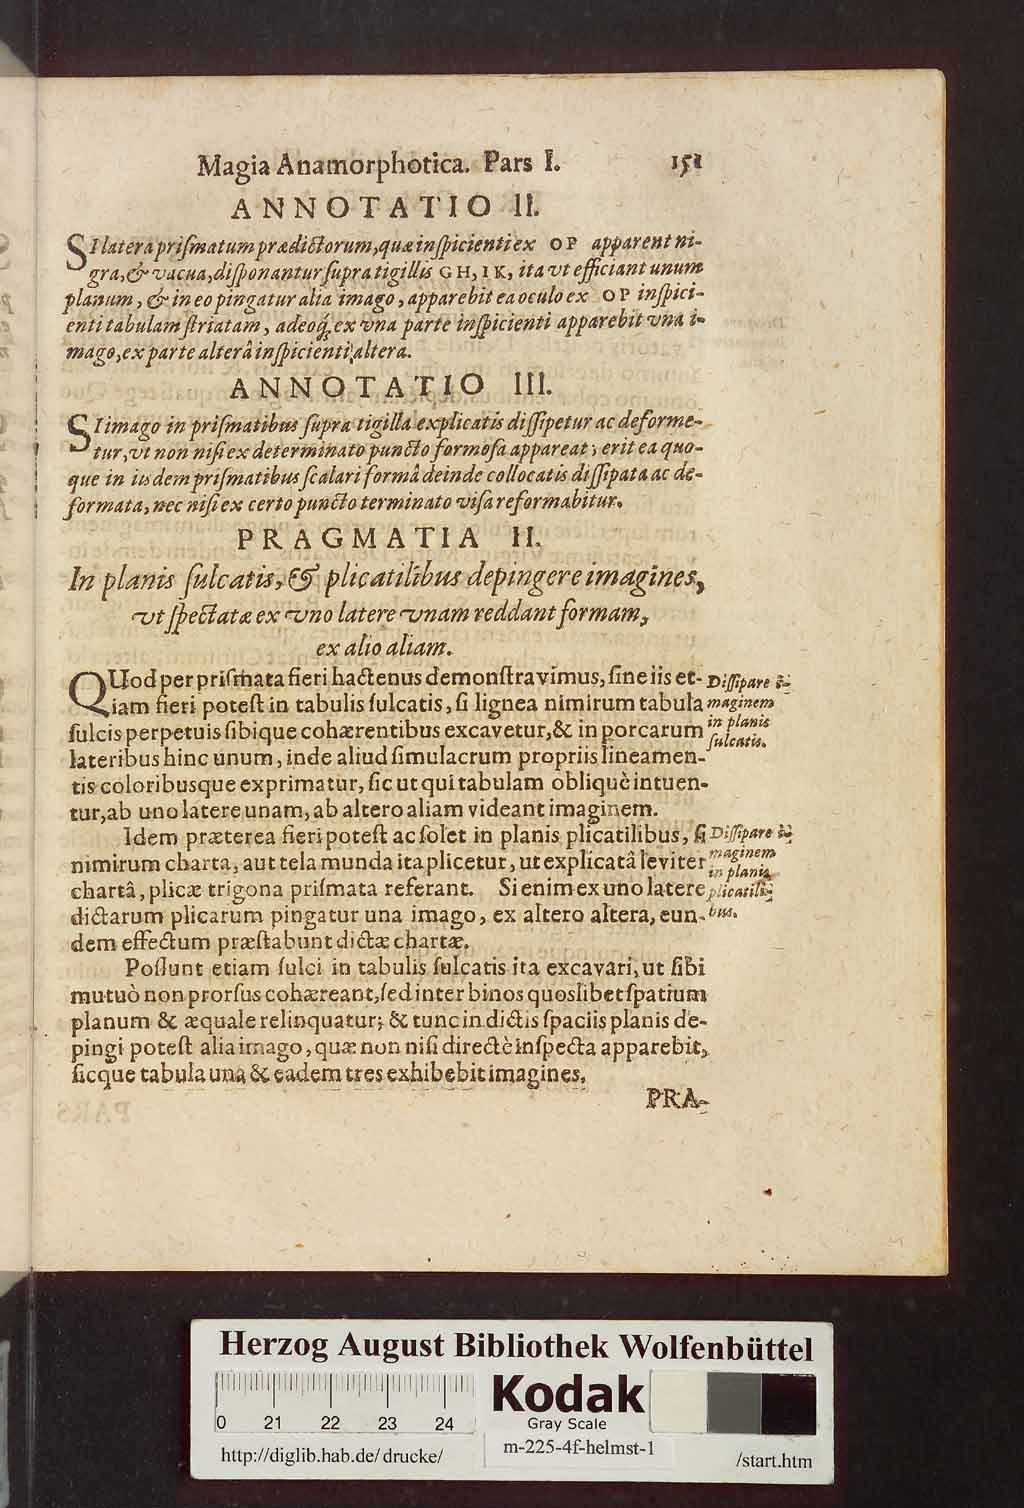 Magia Anamorphotica. Pars I. 151
ANNOTATIO II.
SI latera priſmatum prædictorum, quæ inſpicienti ex OP apparent ni-
gra, & vacua, diſponantur ſupra tigillis GH, IK, ita vt efficiant unum
planum, & in eo pingatur alia imago, apparebit ea oculo ex OP inſpici-
enti tabulam ſtriatam, adeoq́; ex vna parte inſpicienti apparebit vna i-
mago, ex parte alterâ inſpicienti altera.
ANNOTATIO III.
SI imago in priſmatibus ſupra tigilla explicatis diſſipetur ac deforme-
tur, vt non niſi ex determinato puncto formoſa appareat; erit ea quo-
que in iisdem priſmatibus ſcalari formâ deinde collocatis diſſipata ac de-
formata, nec niſi ex certo puncto terminato viſa reformabitur.
PRAGMATIA II.
In planis ſulcatis, & plicatilibus depingere imagines,
vt ſpectatæ ex vno latere vnam reddant formam,
ex alio aliam.
QUod per priſmata fieri hactenus demonſtravimus, ſine iis et-
iam fieri poteſt in tabulis ſulcatis, ſi lignea nimirum tabula
ſulcis perpetuis ſibique cohærentibus excavetur, & in porcarum
lateribus hinc unum, inde aliud ſimulacrum propriis lineamen-
tis coloribusque exprimatur, ſic ut qui tabulam obliquè intuen-
tur, ab uno latere unam, ab altero aliam videant imaginem.
Diſſipare i-
maginem
in planis
ſulcatis.
Idem præterea fieri poteſt ac ſolet in planis plicatilibus, ſi
nimirum charta, aut tela munda ita plicetur, ut explicatâ leviter
chartâ, plicæ trigona priſmata referant. Si enim ex uno latere
dictarum plicarum pingatur una imago, ex altero altera, eun-
dem effectum præſtabunt dictæ chartæ.
Diſſipare i-
maginem
in planis
plicatili-
bus.
Poſſunt etiam ſulci in tabulis ſulcatis ita excavari, ut ſibi
mutuò non prorſus cohæreant, ſed inter binos quoslibet ſpatium
planum & æquale relinquatur; & tunc in dictis ſpaciis planis de-
pingi poteſt alia imago, quæ non niſi directè inſpecta apparebit,
ſicque tabula una & eadem tres exhibebit imagines.
PRA-
Herzog August Bibliothek Wolfenbüttel
0 21 22 23 24
Kodak
Gray Scale
http://diglib.hab.de/drucke/
m-225-4f-helmst-1
/start.htm